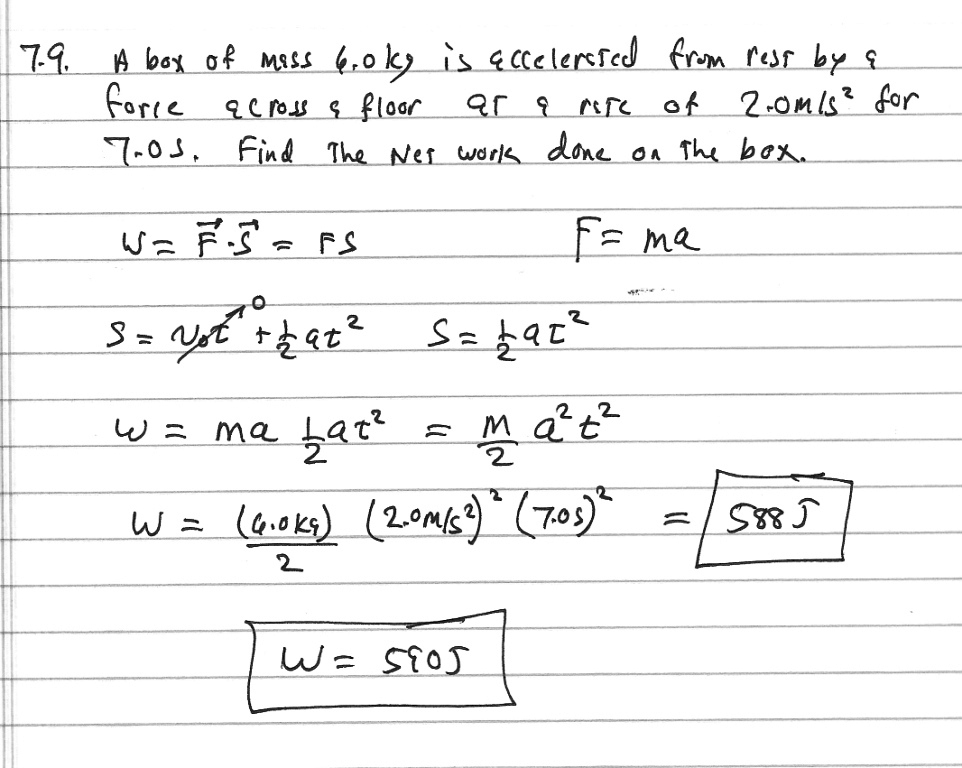 7.9. A box of mass 6.0kg is accelerated from rest by a
force across a floor at a rate of 2.0m/s² for
7.0s. Find The Net work done on The box.
W = F⃗·S⃗ = FS F = ma
S = v₀t⁰ + ½at² S = ½at²
W = ma ½at² = m/2 a²t²
W = (6.0kg)/2 (2.0m/s²)² (7.0s)² = 588 J
W = 590J